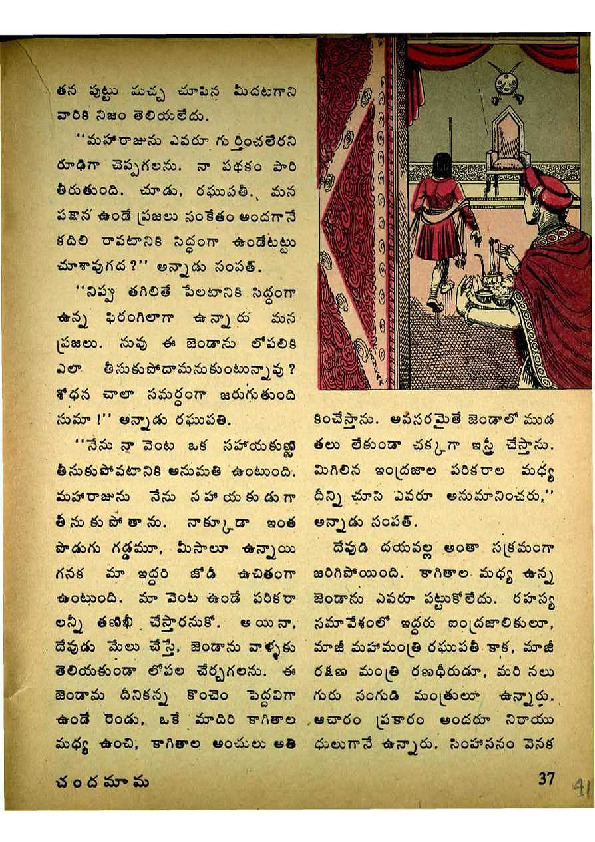 తన పుట్టు మచ్చ చూపిన మీదటగాని
వారికి నిజం తెలియలేదు.
"మహారాజును ఎవరూ గుర్తించలేరని
రూఢిగా చెప్పగలను. నా పథకం పారి
తీరుతుంది. చూడు, రఘుపతీ, మన
పక్షాన ఉండే ప్రజలు సంకేతం అందగానే
కదిలి రావటానికి సిద్ధంగా ఉండేటట్టు
చూశావుగద?" అన్నాడు సంపత్.
"నిప్పు తగిలితే పేలటానికి సిద్ధంగా
ఉన్న ఫిరంగిలాగా ఉన్నారు మన
ప్రజలు. నువు ఈ జెండాను లోపలికి
ఎలా తీసుకుపోదామనుకుంటున్నావు?
శోధన చాలా సమర్థంగా జరుగుతుంది
సుమా!" అన్నాడు రఘుపతి.
"నేను నా వెంట ఒక సహాయకుణ్ణి
తీసుకుపోవటానికి అనుమతి ఉంటుంది.
మహారాజును నేను సహాయకుడుగా
తీసుకుపోతాను. నాక్కూడా ఇంత
పొడుగు గడ్డమూ, మీసాలూ ఉన్నాయి
గనక మా ఇద్దరి జోడీ ఉచితంగా
ఉంటుంది. మా వెంట ఉండే పరికరా
లన్నీ తణిఖీ చేస్తారనుకో. అయినా,
దేవుడు మేలు చేస్తే, జెండాను వాళ్ళకు
తెలియకుండా లోపల చేర్చగలను. ఈ
జెండాను దీనికన్న కొంచెం పెద్దవిగా
ఉండే రెండు, ఒకే మాదిరి కాగితాల
మధ్య ఉంచి, కాగితాల అంచులు అతి
కించేస్తాను. అవసరమైతే జెండాలో ముడ
తలు లేకుండా చక్కగా ఇస్త్రీ చేస్తాను.
మిగిలిన ఇంద్రజాల పరికరాల మధ్య
దీన్ని చూసి ఎవరూ అనుమానించరు,"
అన్నాడు సంపత్.
దేవుడి దయవల్ల అంతా సక్రమంగా
జరిగిపోయింది. కాగితాల మధ్య ఉన్న
జెండాను ఎవరూ పట్టుకోలేదు. రహస్య
సమావేశంలో ఇద్దరు ఐంద్రజాలికులూ,
మాజీ మహామంత్రి రఘుపతి కాక, మాజీ
రక్షణ మంత్రి రణధీరుడూ, మరి నలు
గురు సంగుడి మంత్రులూ ఉన్నారు.
ఆచారం ప్రకారం అందరూ నిరాయు
ధులుగానే ఉన్నారు. సింహాసనం వెనక
చందమామ
37
41